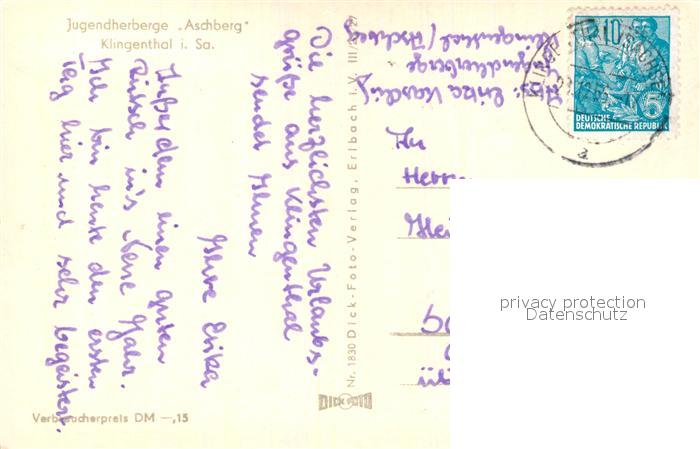 Jugendherberge „Aschberg"
Klingenthal i. Sa.
Die herzlichsten Urlaubs-
grüße aus Klingenthal
sendet Ihnen
Ihre Erika
Außerdem einen guten
Rutsch in's Neue Jahr.
Ich bin heute den ersten
Tag hier und sehr begeistert.
Verbraucherpreis DM —,15
Nr. 1830 Dick-Foto-Verlag, Erlbach i. V. III/
DICK FOTO
Abs.: Erika
Jugendherberge
Klingenthal / Aschberg
10
5
DEUTSCHE
DEMOKRATISCHE REPUBLIK
a
An
Herrn
privacy protection
Datenschutz